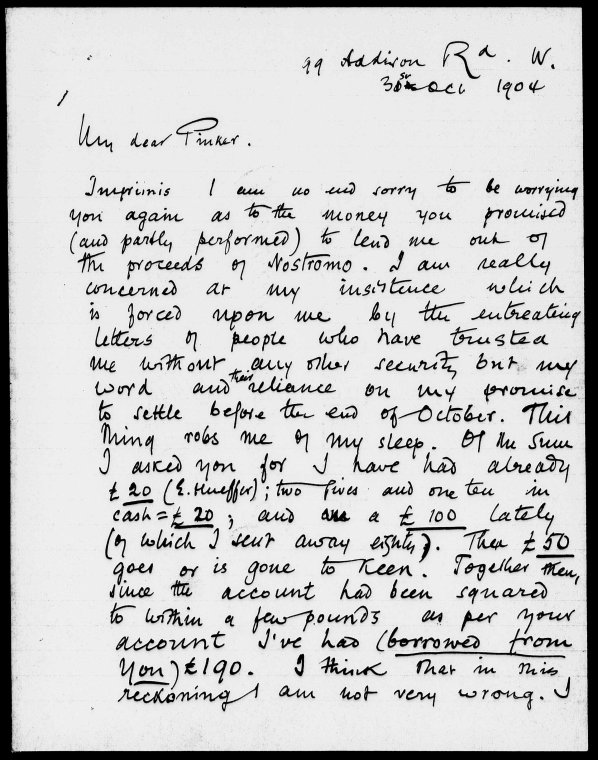 99 Addison Rd. W.
31st Oct 1904
My dear Pinker.
Imprimis I am no end sorry to be worrying
you again as to the money you promised
(and partly performed) to lend me out of
the proceeds of Nostromo. I am really
concerned at my insistence which
is forced upon me by the entreating
letters of people who have trusted
me without any other security but my
word and their reliance on my promise
to settle before the end of October. This
thing robs me of my sleep. Of the sum
I asked you for I have had already
£20 (E. Hueffer); two fives and one ten in
cash = £20; and a £100 lately
(of which I sent away eighty). Then £50
goes or is gone to Keen. Together then,
since the account had been squared
to within a few pounds as per your
account I've had (borrowed from
you) £190. I think that in this
reckoning I am not very wrong. I